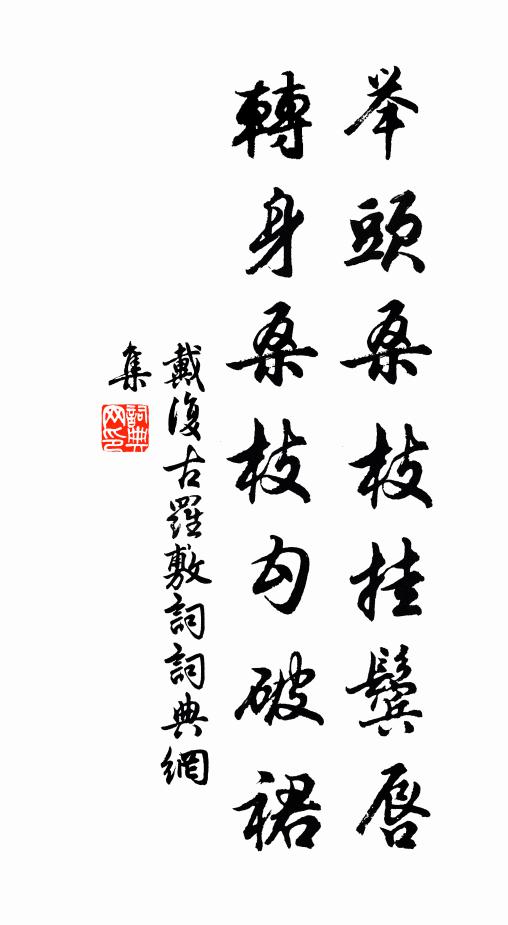 举頭桑枝挂鬓唇
轉身桑枝勾破裙
戴復古羅敷詞詞典網
集
詞典
网印